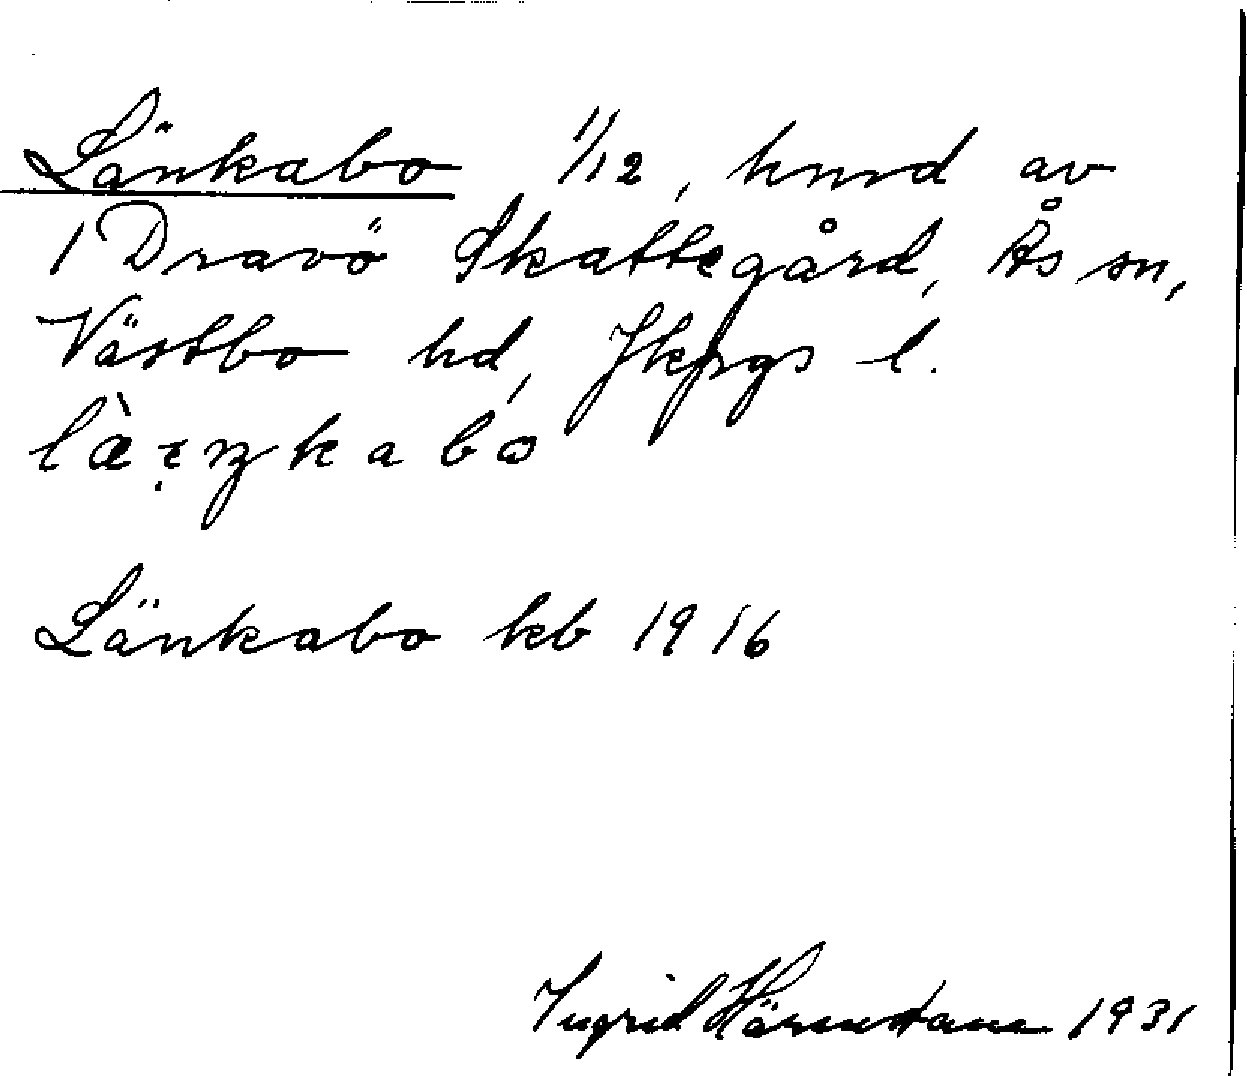 Länkabo 1/12, hmd av
1 Dravö Skattegård, Ås sn,
Västbo hd, Jkpgs l.
Länkabo kb 1916
Ingrid 1931